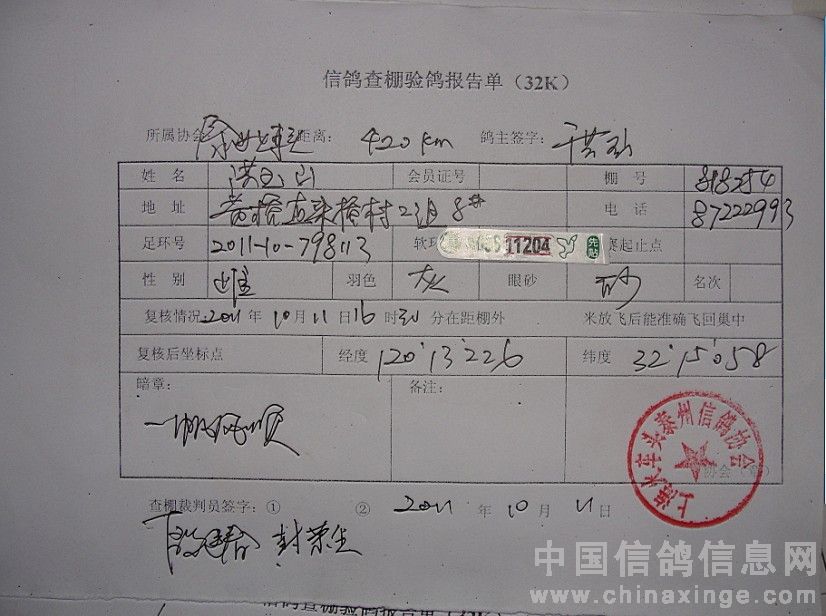 信鸽查棚验鸽报告单（32K）
所属协会 距离： 420 km 鸽主签字：
姓 名 洪 山 会员证号 棚 号 818254
地 址 黄桥 村 2组 8# 电 话 87222993
足环号 2011-10-798113 软环 11204 先贴 赛起止点
性 别 雌 羽色 灰 眼砂 砂 名次
复核情况 2011 年 10 月 11 日 16 时 分在距棚外 米放飞后能准确飞回巢中
复核后坐标点 经度 120°13′226 纬度 32°15′058
暗章： 备注：
一帆风顺
上海火车头泰州信鸽协会
协会（章）
查棚裁判员签字：① ② 2011 年 10 月 11 日
封荣生
中国信鸽信息网
www.chinaxinge.com